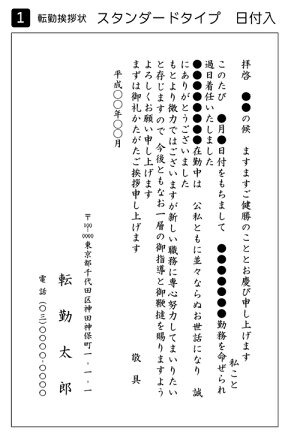 1 転勤挨拶状 スタンダードタイプ 日付入
拝啓 ●●の候 ますますご健勝のこととお慶び申し上げます
私こと
このたび ●月●日付をもちまして ●●●●●●勤務を命ぜられ
過日着任いたしました
●●●●●●在勤中は 公私ともに並々ならぬお世話になり 誠
にありがとうございました
もとより微力ではございますが新しい職務に専心努力してまいりたい
と存じますので 今後ともなお一層の御指導と御鞭撻を賜りますよう
よろしくお願い申し上げます
まずは御礼かたがたご挨拶申し上げます
敬具
平成〇〇年〇〇月
〒100-0000 東京都千代田区神田神保町一-一-一
転勤太郎
電話(〇三)〇〇〇〇-〇〇〇〇